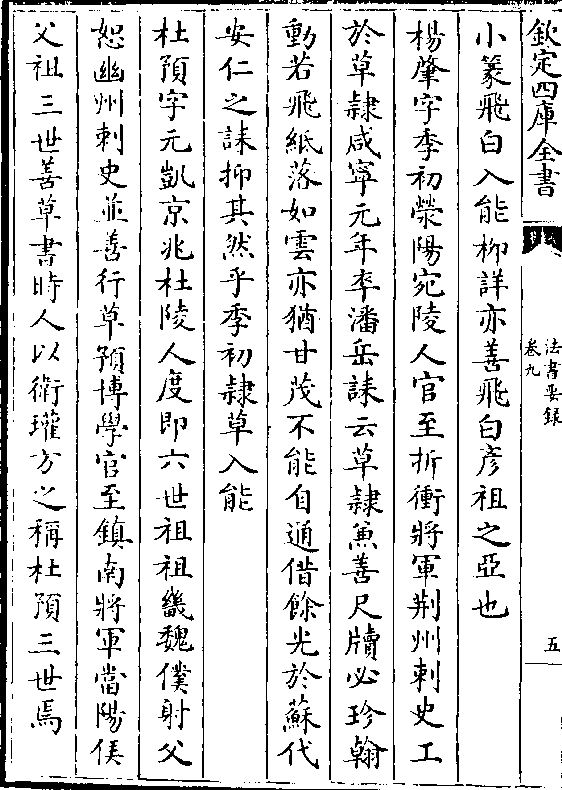 欽定四庫全書
法書要録
卷九
五
小篆飛白入能栁詳亦善飛白彦祖之亞也
楊肇字季初滎陽宛陵人官至折衝將軍荆州刺史工
於草隷咸寧元年卒潘岳誄云草隷兼善尺牘必珍翰
動若飛紙落如雲亦猶甘茂不能自通借餘光於蘇代
安仁之誄抑其然乎季初隷草入能
杜預字元凱京兆杜陵人度即六世祖祖畿魏僕射父
恕幽州刺史並善行草預博學官至鎮南將軍當陽侯
父祖三世善草書時人以衛瓘方之稱杜預三世焉